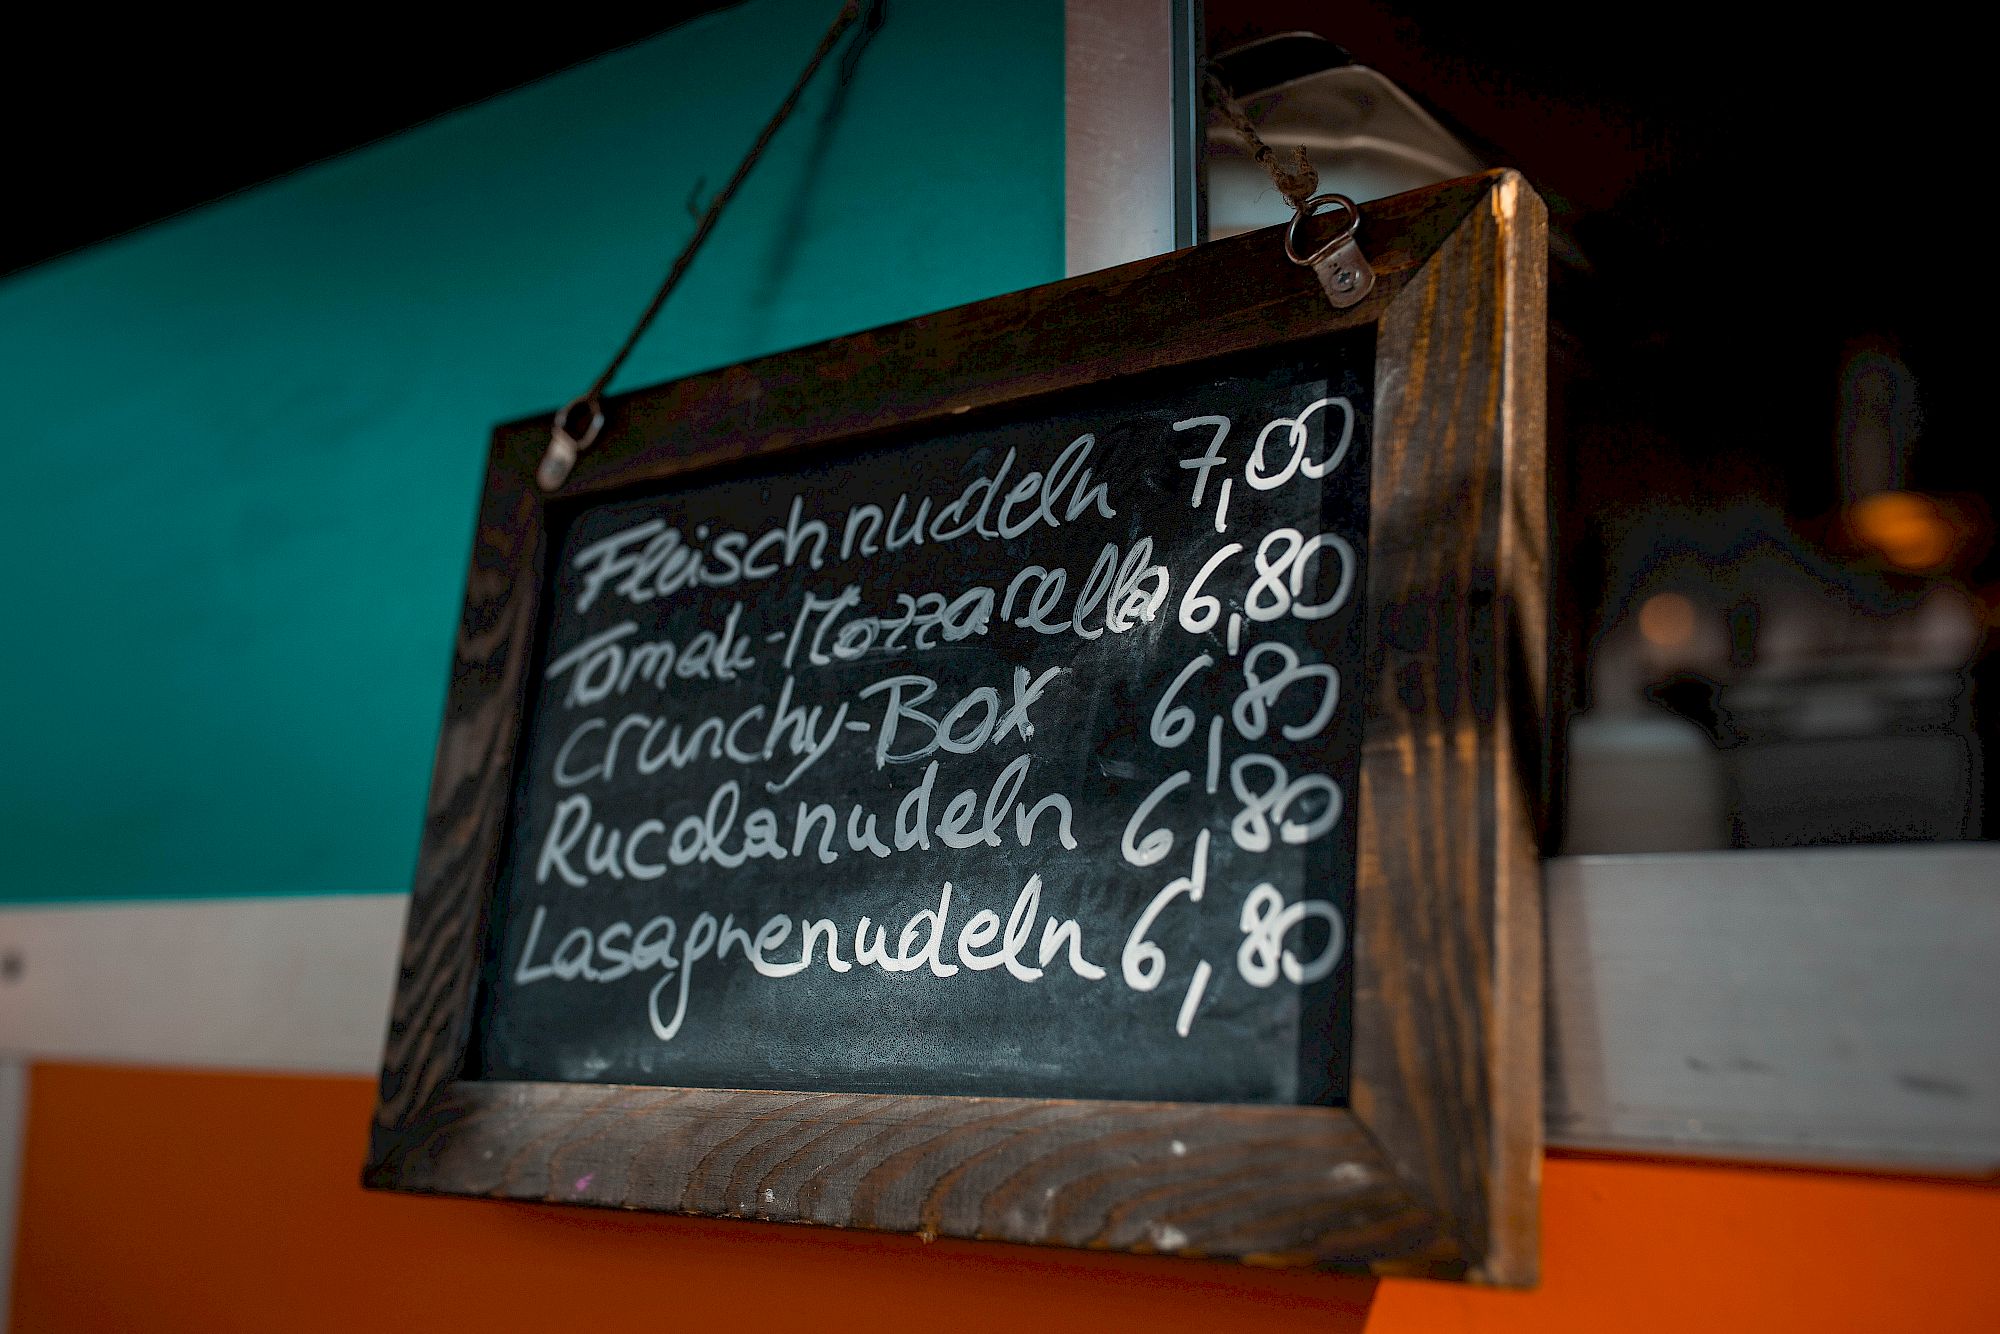 Fleischnudeln 7,00
Tomak-Mozzarella 6,80
Crunchy-Box 6,80
Rucolanudeln 6,80
Lasagnenudeln 6,80